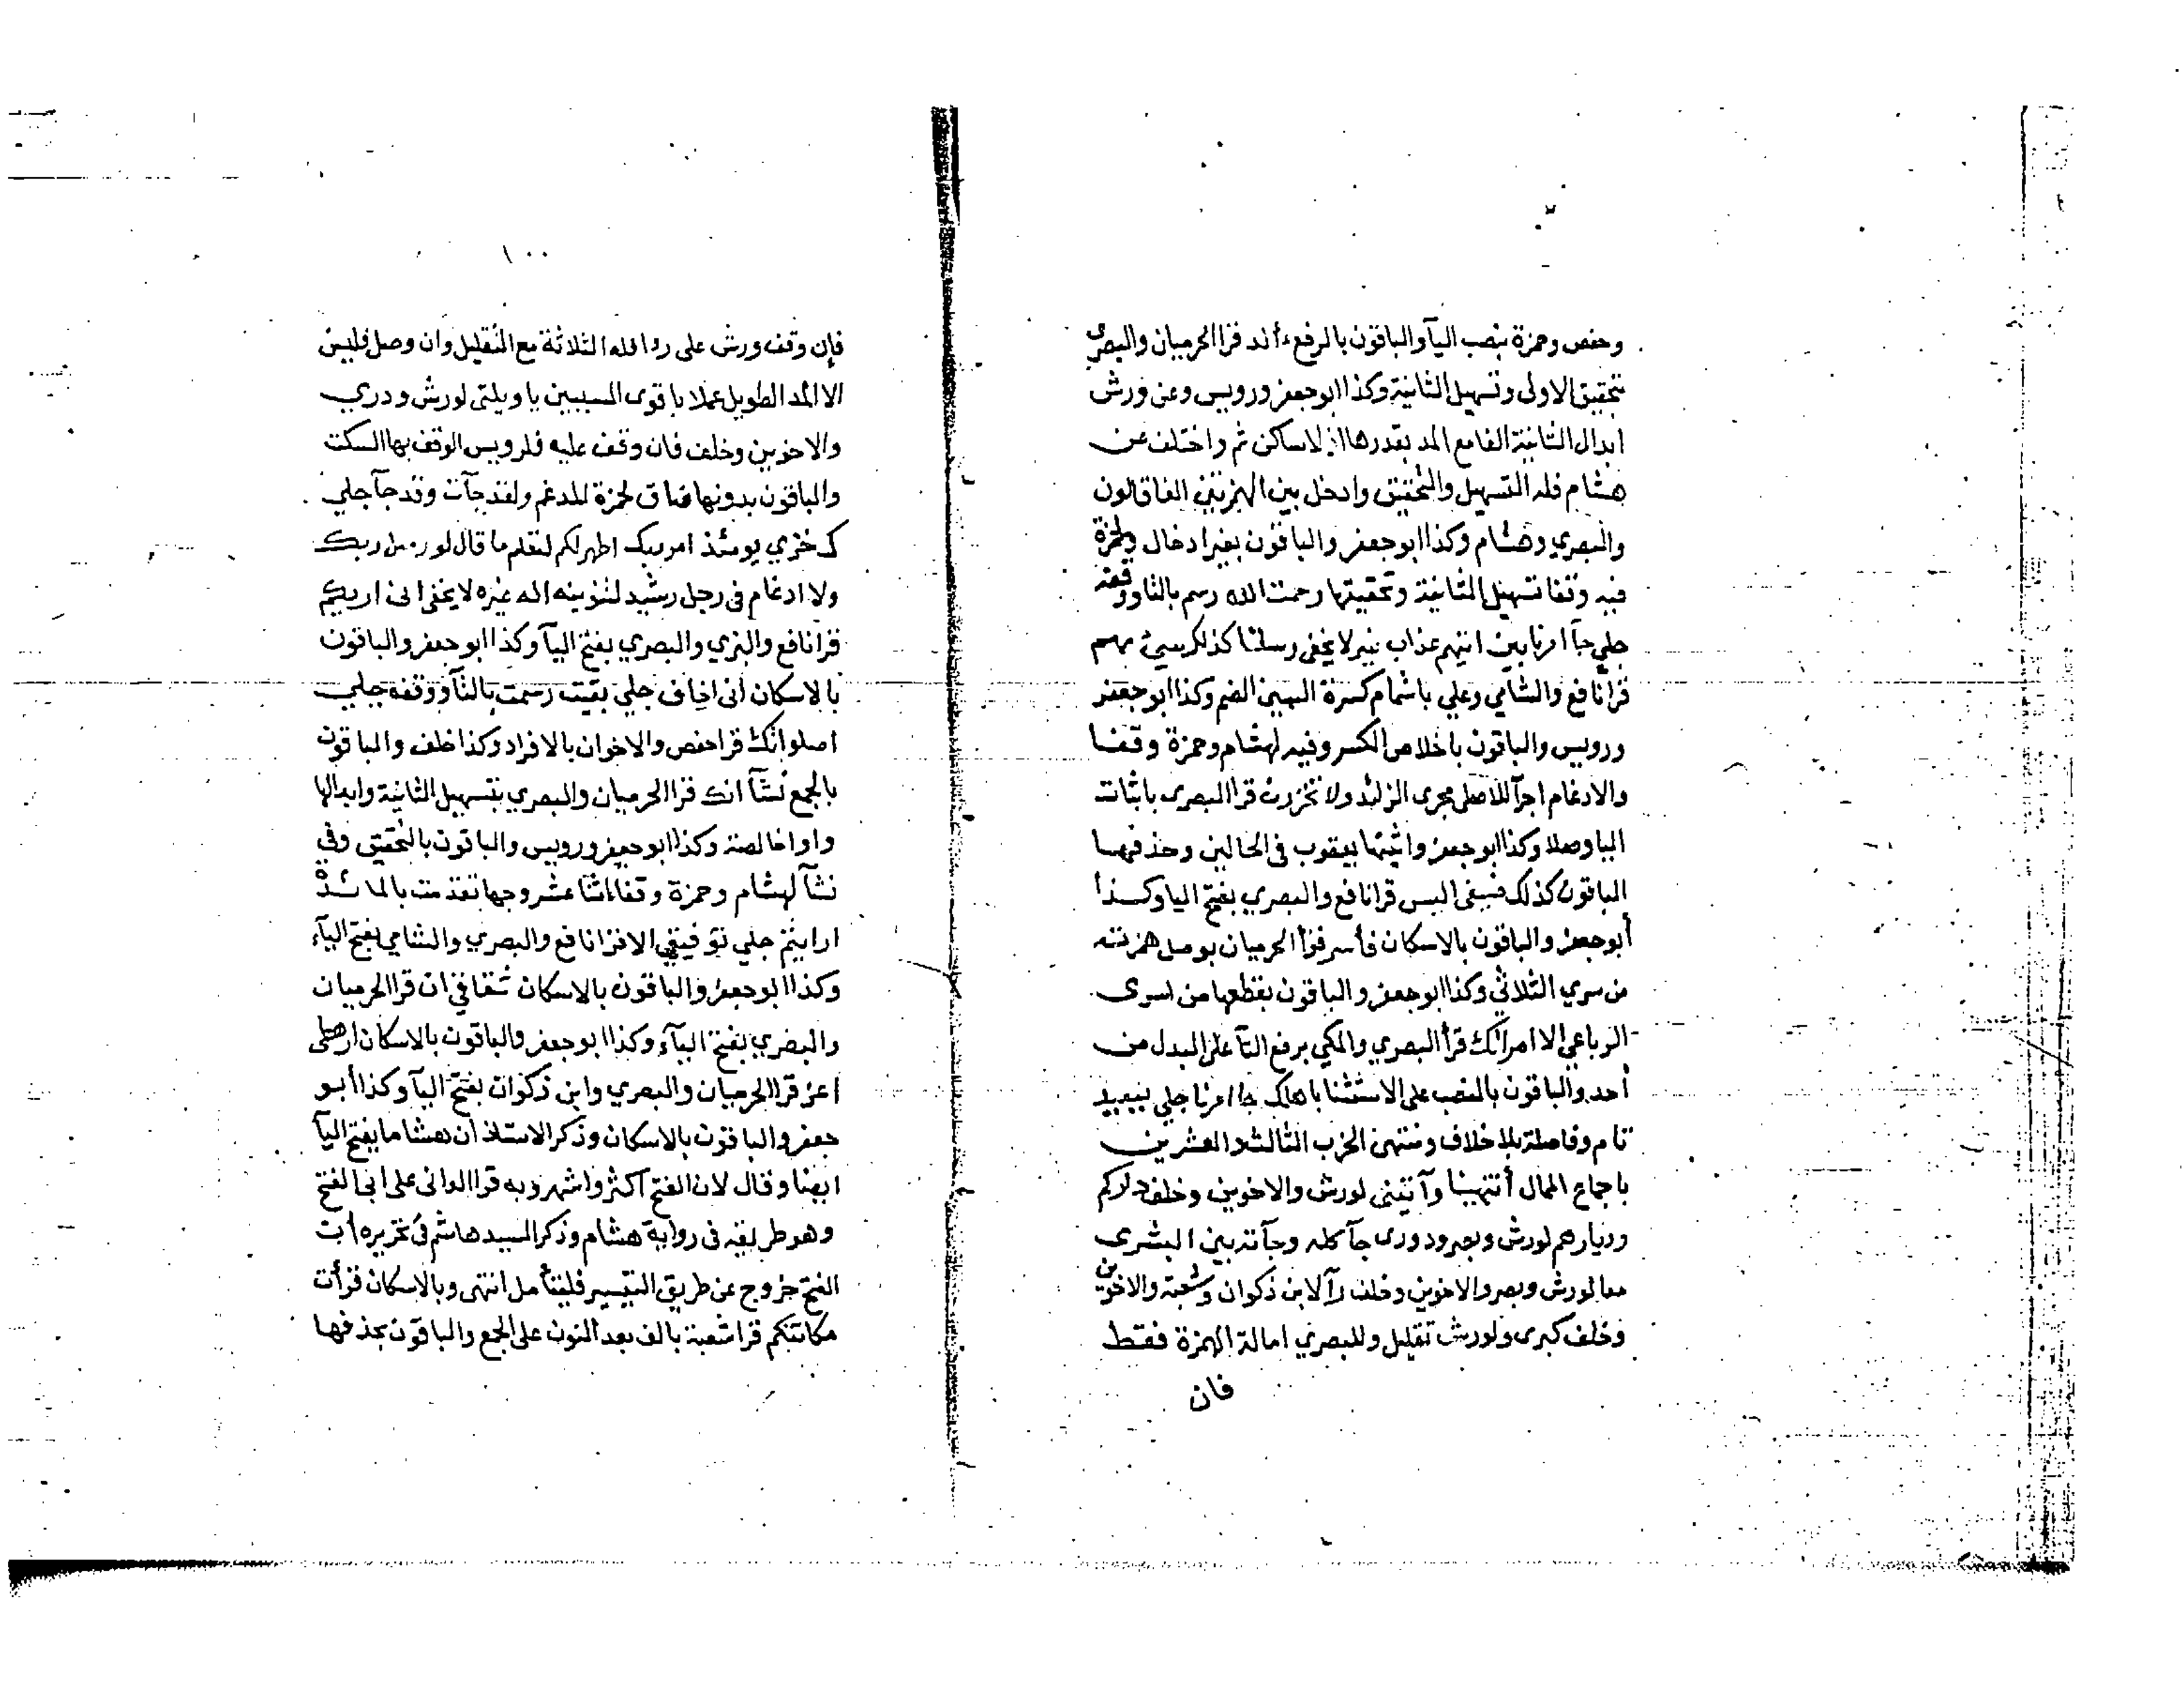 وحفص وحمزة بنصب اليآ والباقون بالرفع ءألد قرا الحرميان والبصري
بتحقيق الاولى وتسهيل الثانية وكذا ابو جعفر ورويس وعن ورش
ابدال الثانية الفا مع المد بقدرها اذ لا ساكن ثم واختلف عن
هشام فله التسهيل والتحقيق وادخل بين الهمزتين الفا قالون
والبصري وهشام وكذا ابو جعفر والباقون بغير ادخال ولحمزة
فيه وقفا تسهيل الثانية وتحقيقها رحمت الله رسم بالتا ووقفه
جلي جآ امرنا بين اتيهم عذاب غير لا يخفى رسلنا كذلك سيئ بهم
قرا نافع والشامي وعلي باشمام كسرة السين الضم وكذا ابو جعفر
ورويس والباقون باخلاص الكسر وفيه لهشام وحمزة وقفا
والادغام اجرآ للاصلي مجرى الزائد ولا تخزون قرا البصرى باثبات
اليا وصلا وكذا ابو جعفر واثبتها يعقوب في الحالين وحذفها
الباقون كذلك ضيفى اليس قرا نافع والبصري بفتح اليا وكذا
أبو جعفر والباقون بالاسكان فأسر قرأ الحرميان بوصل همزته
من سري الثلاثي وكذا ابو جعفر والباقون بقطعها من اسرى
الرباعي الا امراتك قرأ البصري والمكي برفع التآ على البدل من
أحد والباقون بالنصب على الاستثنا باهلك جآ امرنا جلي ببعيد
تام وفاصلة بلا خلاف ومنتهى الحزب الثالث والعشرين
باجماع الممال أتنهينا وآتيني لورش والاخوين وخلف داركم
وديارهم لورش وبصر ودورى جآ كله وجآته بين البشرى
معا لورش وبصر والاخوين وخلف رآ لابن ذكوان وشعبة والاخوين
وخلف كبرى ولورش تقليل وللبصري امالة الهمزة فقط
فان
١٠٠
فإن وقف ورش على رءا فله الثلاثة مع التقليل وان وصل فليس
الا المد الطويل عملا باقوى السببين يا ويلتى لورش ودري
والاخوين وخلف فان وقف عليه فلرويس الوقف بها السكت
والباقون بدونها ضاق لحمزة المدغم ولقد جآت وقد جآ جلي
ك خزي يومئذ امر ربك اطهر لكم لتعلم ما قال لو رسل ربك
ولا ادغام في رجل رشيد لتنوينه اله غيره لا يخفى انى اريكم
قرا نافع والبزي والبصري بفتح اليآ وكذا ابو جعفر والباقون
بالاسكان انى اخاف جلي بقيت رسمت بالتآ ووقفه جلي
اصلواتك قرا حفص والاخوان بالافراد وكذا خلف والباقون
بالجمع نشآ انك قرا الحرميان والبصري بتسهيل الثانية وابدالها
واوا خالصة وكذا ابو جعفر ورويس والباقون بالتحقيق وفي
نشآ لهشام وحمزة وقفا اثنا عشر وجها تقدمت بالمائدة
ارايتم جلي توفيقي الا قرا نافع والبصري والشامي بفتح اليآء
وكذا ابو جعفر والباقون بالاسكان شقاقي ان قرا الحرميان
والبصري بفتح اليآء وكذا ابو جعفر والباقون بالاسكان ارهطى
اعز قرا الحرميان والبصري وابن ذكوان بفتح اليآ وكذا أبو
جعفر والباقون بالاسكان وذكر الاستاذ ان هشاما بفتح اليآ
ايضا وقال لان الفتح اكثر واشهر وبه قرا الدانى على ابى الفتح
وهو طريقه فى رواية هشام وذكر السيد هاشم فى تحريره ان
الفتح خروج عن طريق التيسير فليتأمل انتهى وبالاسكان قرأت
مكانتكم قرا شعبة بالف بعد النون على الجمع والباقون بحذفها